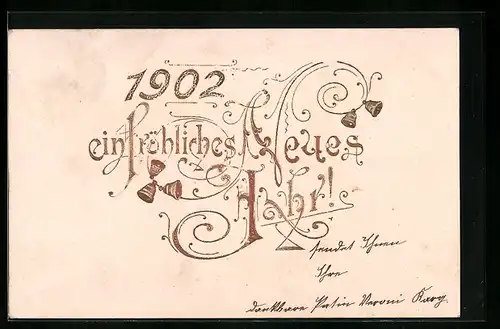 1902
ein fröhliches Neues
Jahr!
sendet Ihnen
Ihre
dankbare Patin Vroni Karg.